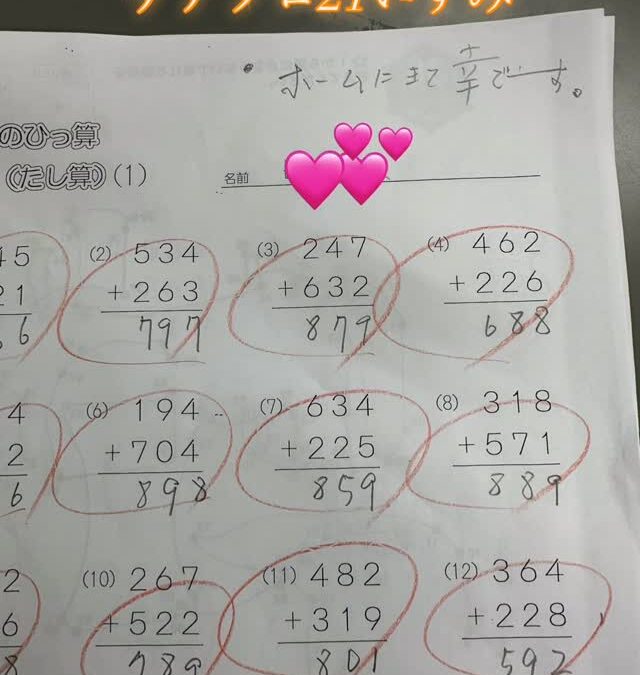 ・ホームにきて幸です。
のひっ算
(たし算)(1)
名前
45 (2) 534 (3) 247 (4) 462
21 +263 +632 +226
66 797 879 688
4 (6) 194 (7) 634 (8) 318
2 +704 +225 +571
6 898 859 889
2 (10) 267 (11) 482 (12) 364
6 +522 +319 +228
8 789 801 592